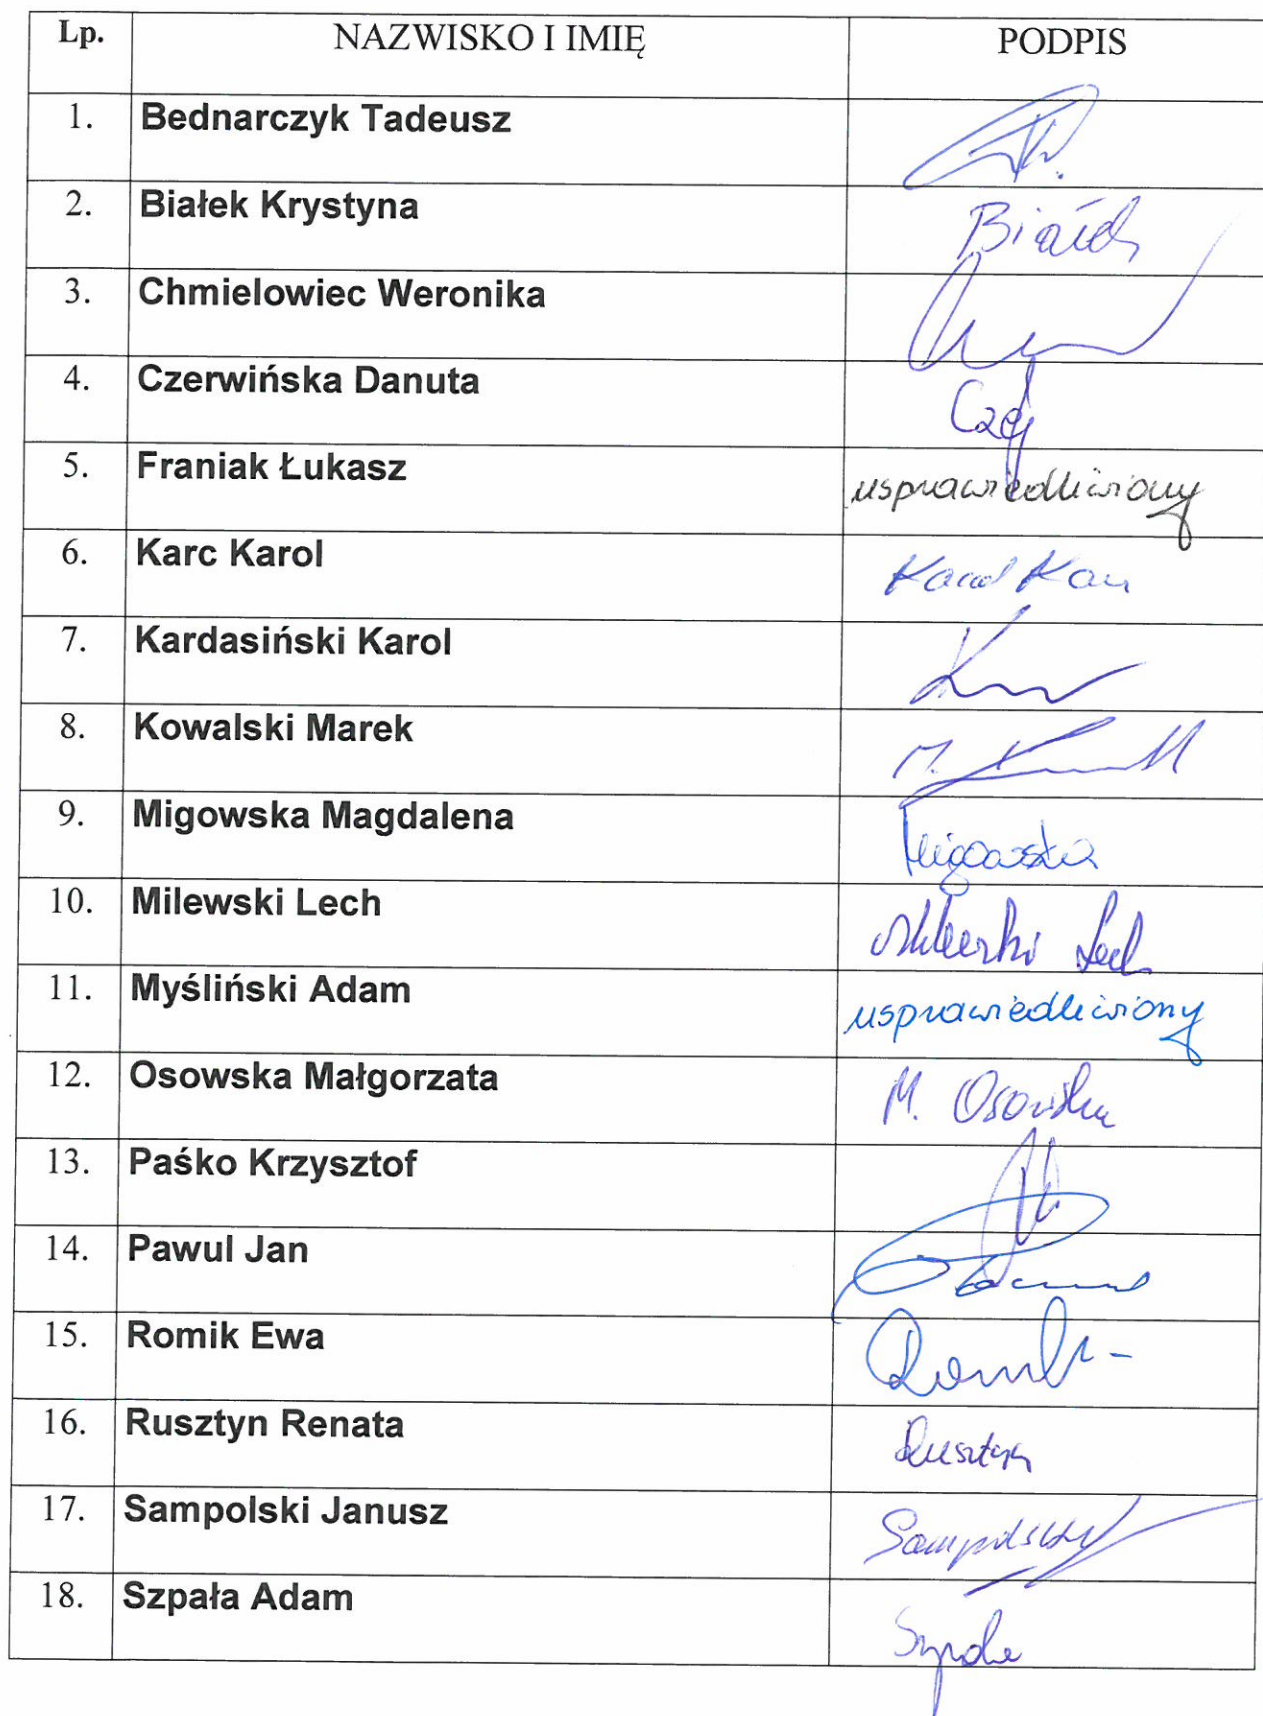 Lp. NAZWISKO I IMIĘ PODPIS
1. Bednarczyk Tadeusz
2. Białek Krystyna Białek
3. Chmielowiec Weronika
4. Czerwińska Danuta
5. Franiak Łukasz usprawiedliwiony
6. Karc Karol Karol Karc
7. Kardasiński Karol
8. Kowalski Marek M.
9. Migowska Magdalena Migowska
10. Milewski Lech Milewski Lech
11. Myśliński Adam usprawiedliwiony
12. Osowska Małgorzata M. Osowska
13. Paśko Krzysztof
14. Pawul Jan
15. Romik Ewa Romik
16. Rusztyn Renata Rusztyn
17. Sampolski Janusz Sampolski
18. Szpała Adam Szpała